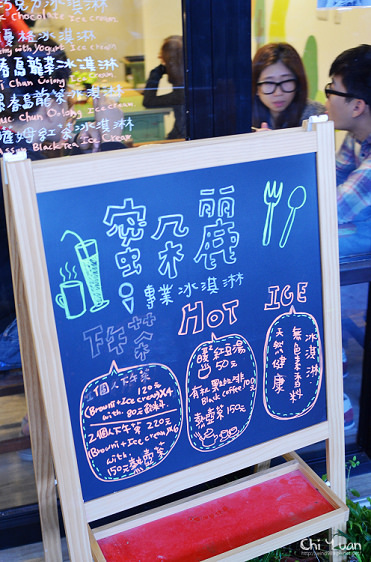 巧克力冰淇淋
Chocolate Ice cream
優格冰淇淋
with Yogurt Ice cream
烏龍茶冰淇淋
Oolong Ice cream
春烏龍茶冰淇淋
Chun Oolong Ice cream
薩姆紅茶冰淇淋
Assam Black tea Ice cream
蜜朵麗
專業冰淇淋
下午茶
1個人下午茶
120元
(Brownie+Ice cream)X4
with 80元飲料
2個人下午茶 220元
(Brownie+Ice cream)X6
with
150元熱壺茶
HOT
暖紅豆湯
50元
有机黑咖啡
Black coffee 100
熱壺茶150元
ICE
冰淇淋
無色素香料
天然健康
Chi Yuan